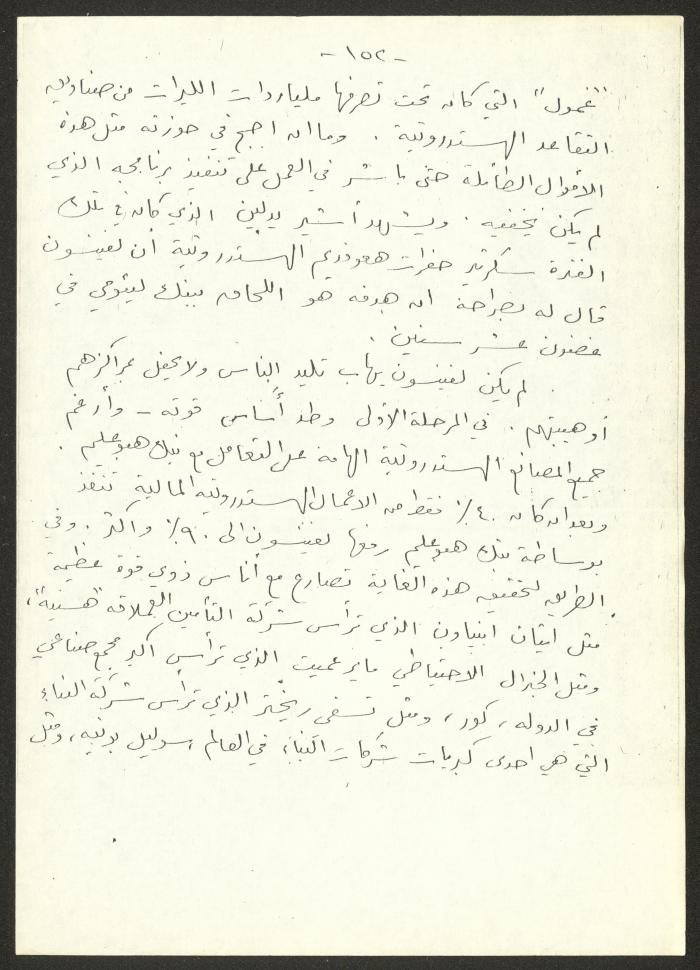 - ١٥٢ -
"غمول" التي كانت تحت تصرفها مليارات الليرات من صناديق
التقاعد الهستدروتية . وما ان اصبح في حوزته مثل هذه
الاموال الطائلة حتى باشر في العمل على تنفيذ برنامجه الذي
لم يكن يخفيه . ويشهد أشير يدلين الذي كان في تلك
الفترة سكرتير حفرات هعوفديم الهستدروتية أن لفينسون
قال له بصراحة ان هدفه هو اللحاق ببنك ليئومي في
غضون عشر سنين .
لم يكن لفينسون يهاب تليد الناس ولا يحفل بمراكزهم
أو هيبتهم . في المرحلة الأولى وطد أساس قوته - وأرغم
جميع المصانع الهستدروتية الهامة على التعامل مع بنك هبوعليم .
وبعد ان كان ٤٠٪ فقط من الاعمال الهستدروتية المالية تنفذ
بوساطة بنك هبوعليم رفعها لفينسون الى ٩٠٪ واكثر . وفي
الطريق لتحقيق هذه الغاية تصارع مع أناس ذوي قوة عظيمة
مثل ايتان ابنياون الذي ترأس شركة التأمين العملاقة "هسنيه"،
ومثل الجنرال الاحتياطي ماير عميت الذي ترأس اكبر مجمع صناعي
في الدولة ، كور ، ومثل تسفي ريختر الذي ترأس شركة البناء
التي هي احدى كبريات شركات البناء في العالم ، سوليل بونيه ، ومثل